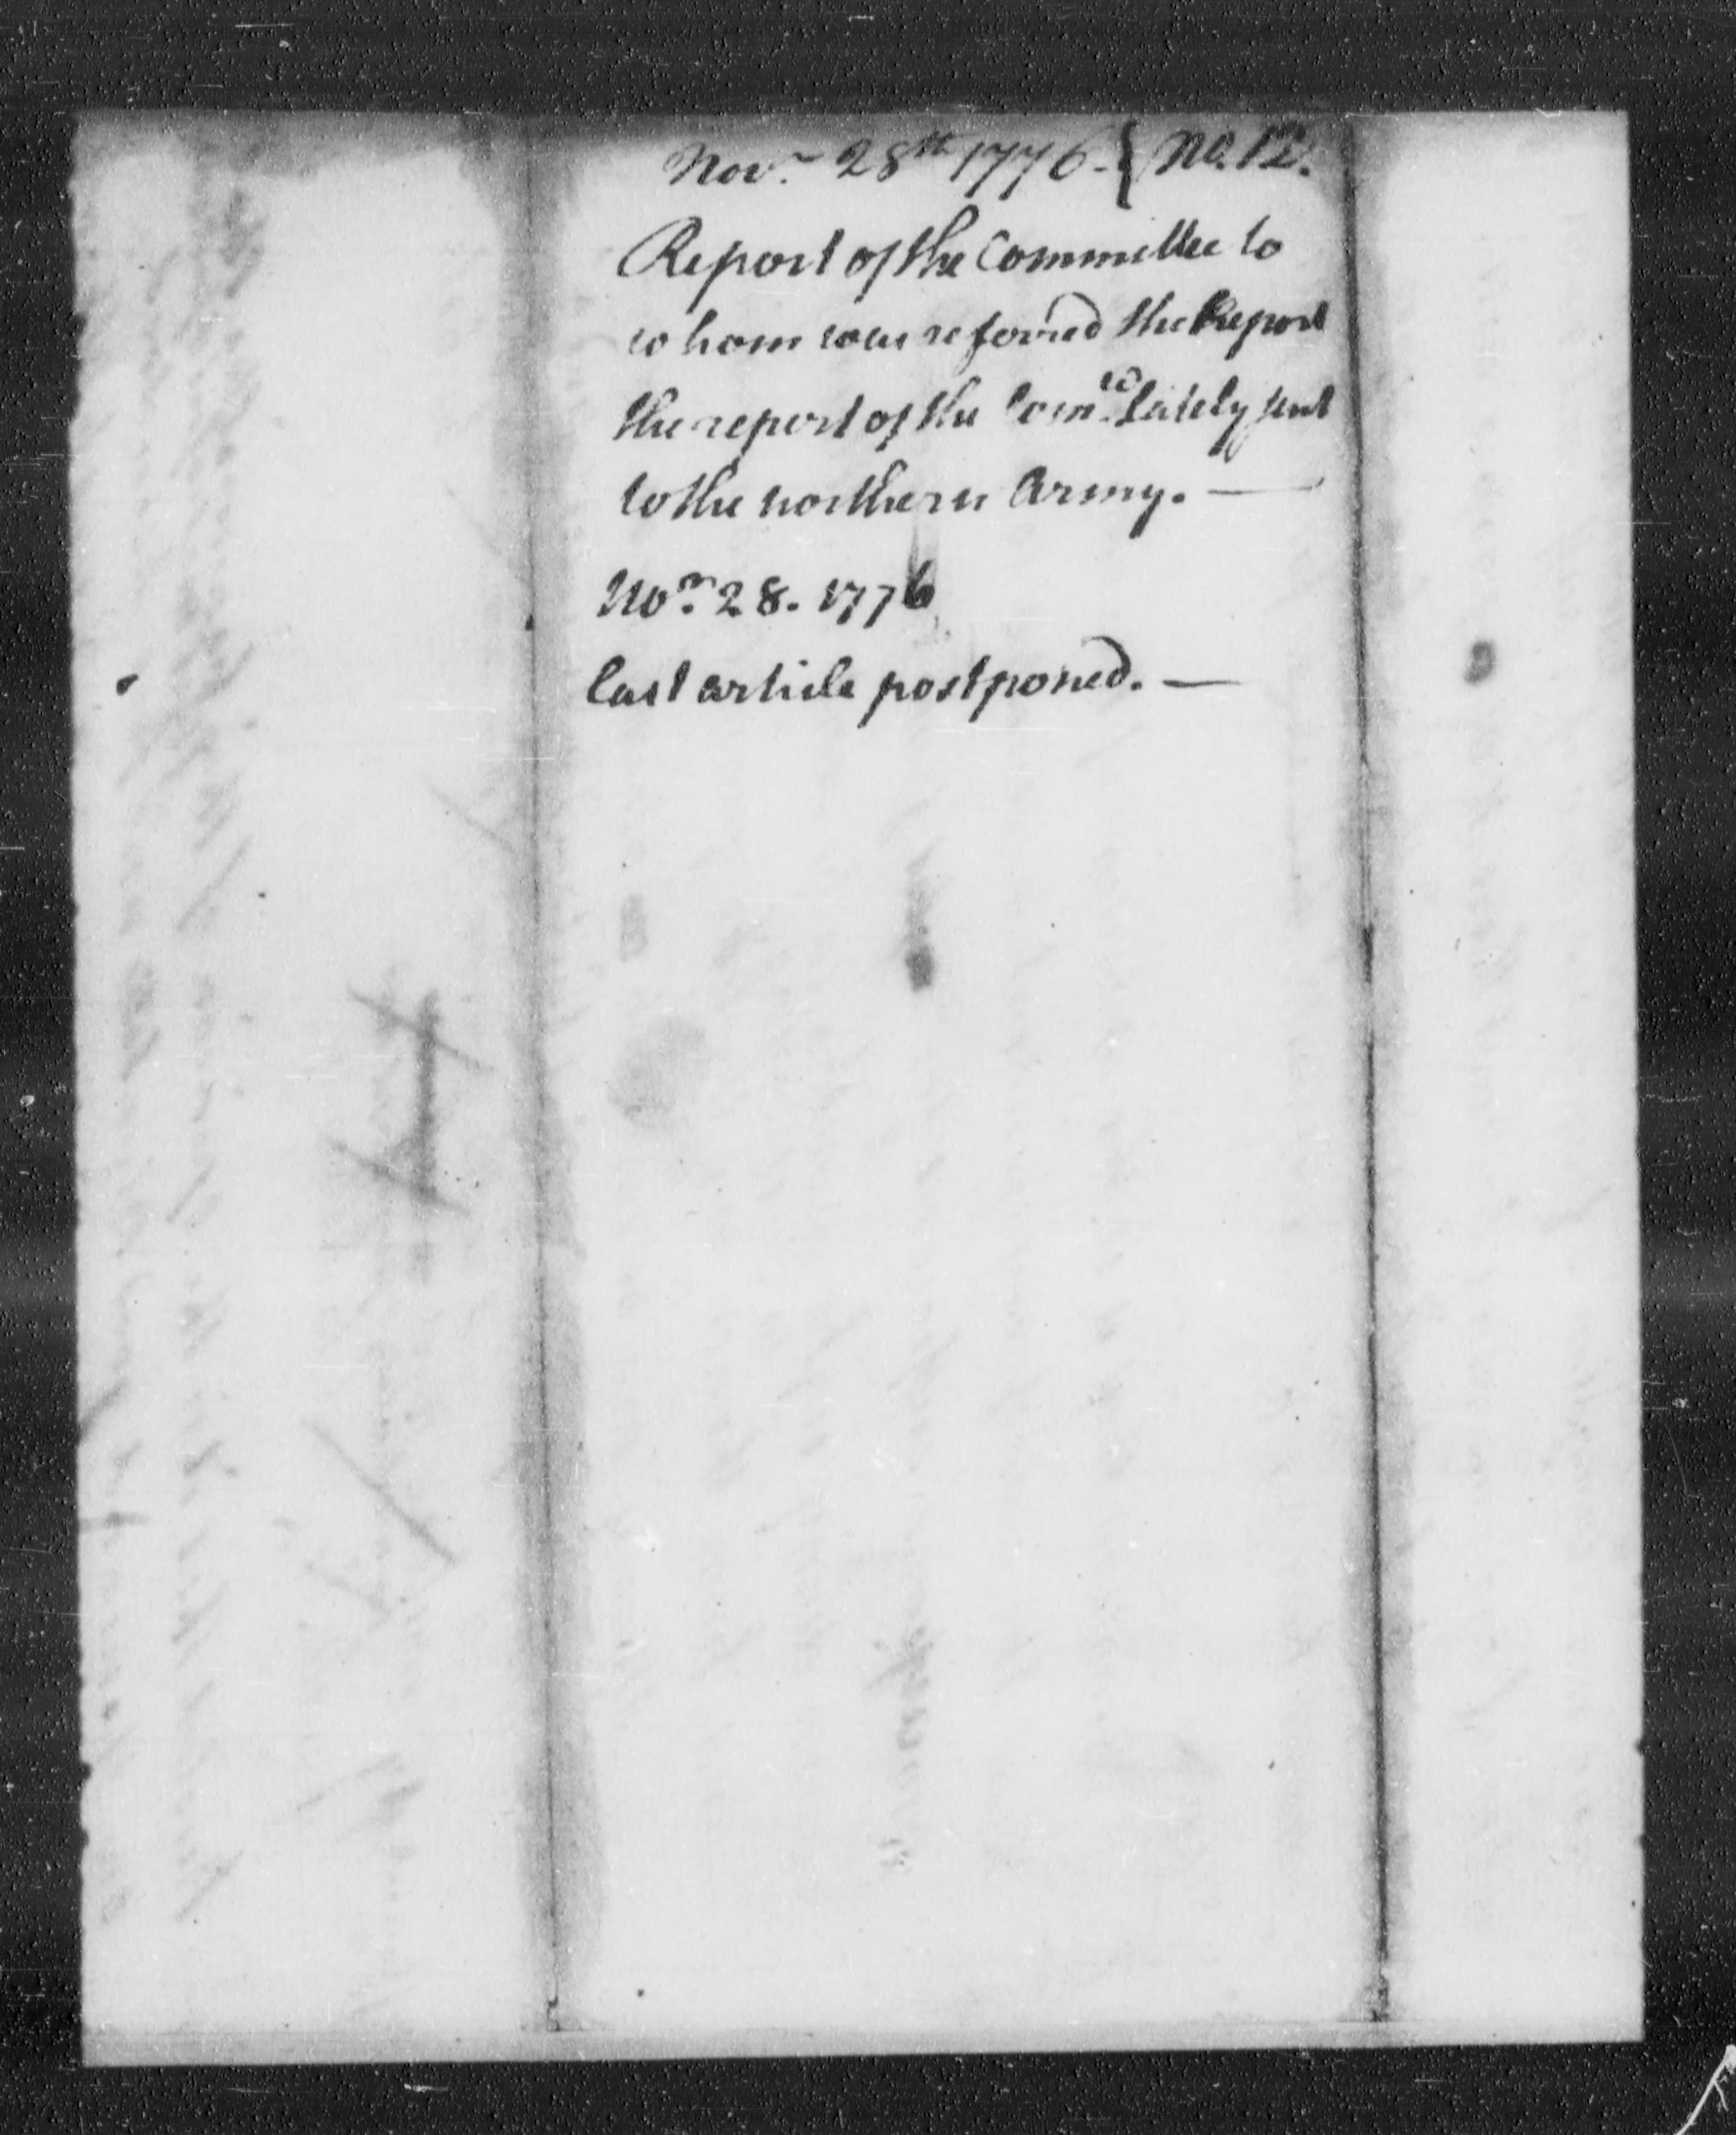 Novr 28th 1776 - { No. 12.
Report of the Committee to
whom was referred the Report
the report of the Comee lately sent
to the northern Army. —
Nor 28. 1776
last article postponed. —